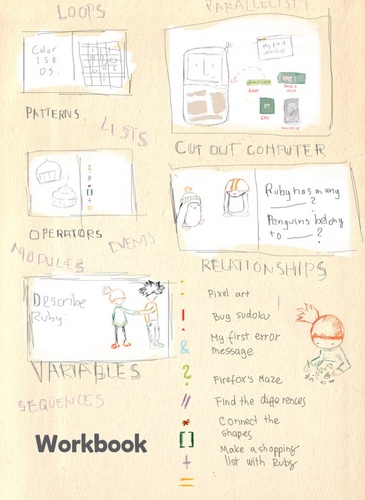 LOOPS
PARALLELISM
Color
1 S E
O S.
My first
computer
RAM
ROM
CPU
PATTERNS
LISTS
CUT OUT COMPUTER
Ruby has many
____ ?
Penguins belong
to ____ ?
OPERATORS
EVENTS
MODULES
RELATIONSHIPS
Describe
Ruby
VARIABLES
SEQUENCES
Workbook
:
Pixel art
!
Bug sudoku
&
My first error
message
?
Firefox's Maze
//
Find the differences
*
Connect the
shapes
[]
Make a shopping
list with Ruby
+
=